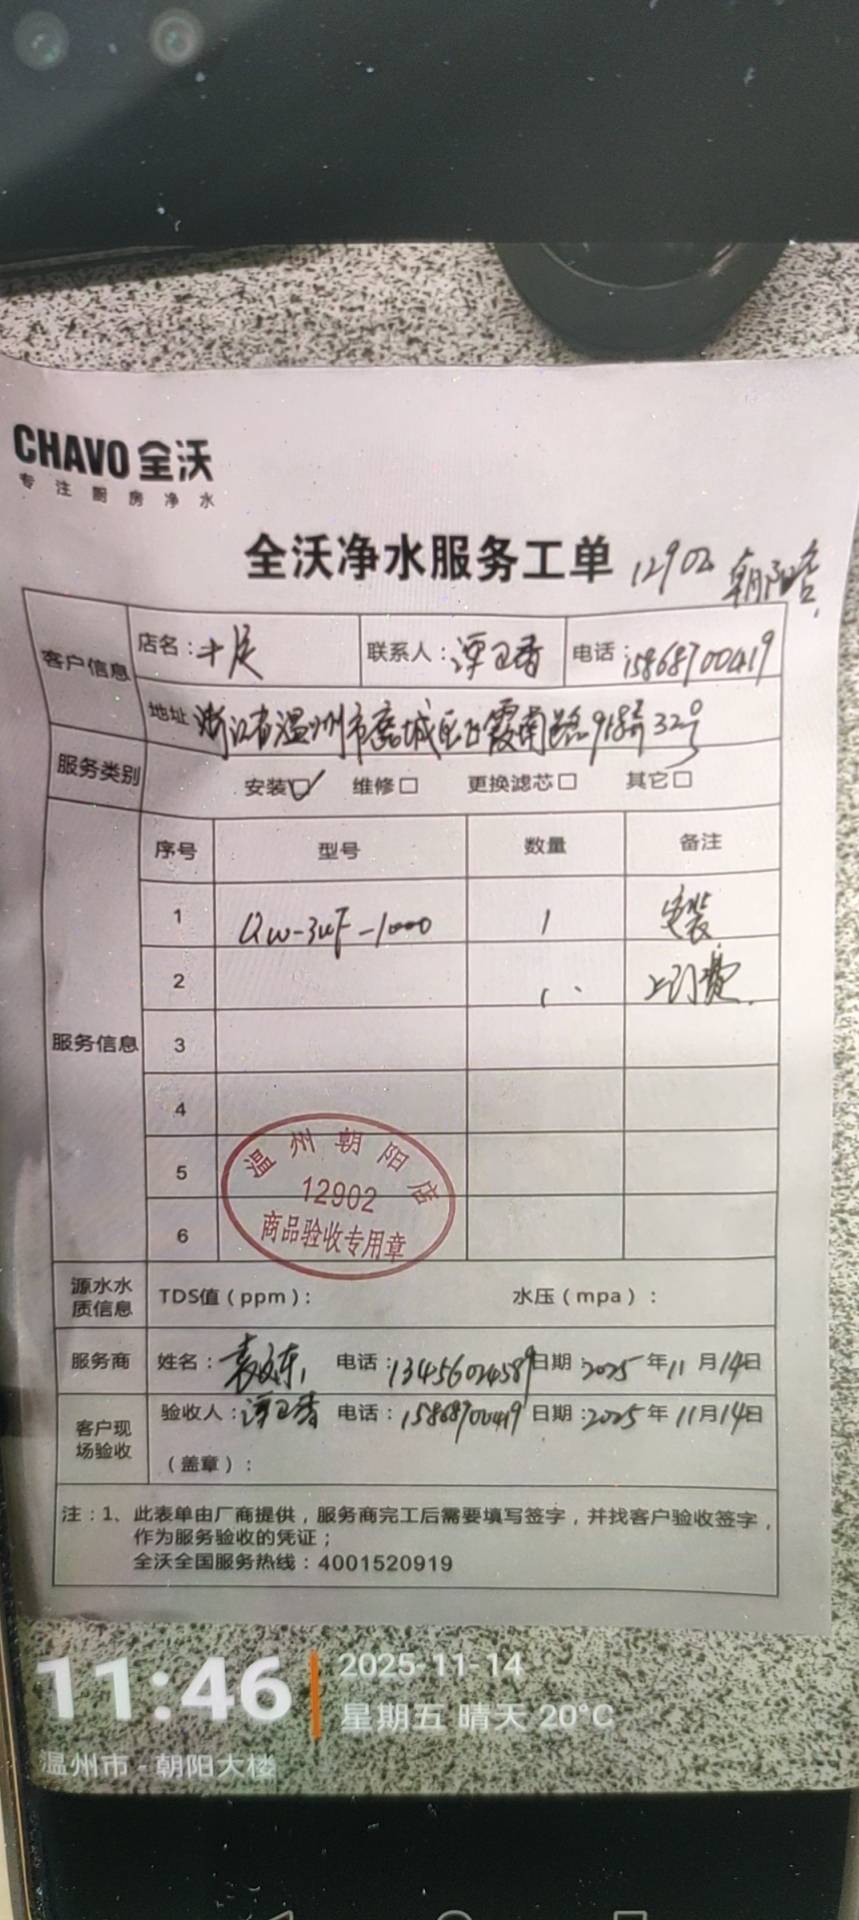 CHAVO 全沃
专注厨房净水
全沃净水服务工单 12902 朝阳店
客户信息 店名: 联系人:谭卫香 电话:15868700419
地址 浙江省温州市鹿城区 霞南路918号32号
服务类别 安装☑ 维修□ 更换滤芯□ 其它□
服务信息
序号 型号 数量 备注
1 QW-3uF-1000 1 安装
2 1 上门费
3
4
5
6
温州朝阳店
12902
商品验收专用章
源水水质信息 TDS值(ppm): 水压(mpa):
服务商 姓名:袁 东 电话:13456024589 日期:2025年11月14日
客户现场验收 验收人:谭卫香 电话:15868700419 日期:2025年11月14日
(盖章):
注:1、此表单由厂商提供,服务商完工后需要填写签字,并找客户验收签字,
作为服务验收的凭证;
全沃全国服务热线:4001520919
11:46 2025-11-14
星期五 晴天 20°C
温州市-朝阳大楼